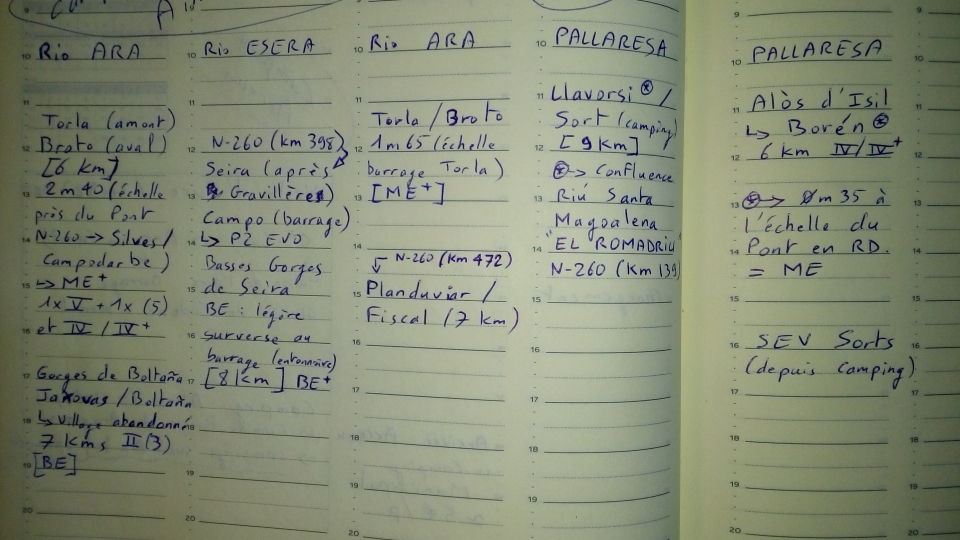 Rio ARA
Torla (amont)
Broto (aval)
[6 km]
2m40 (échelle
près du Pont
N-260 → Silves/
Campodarbe)
↳ ME+
1x V + 1x (5)
et IV / IV+
Gorges de Boltaña
Janovas / Boltaña
↳ village abandonné
7 kms II (3)
[BE]
Rio ESERA
N-260 (km 398)
Seira (après
Gravillères)
Campo (barrage)
↳ P2 EVO
Basses Gorges
de Seira
BE : légère
surverse au
barrage (entonnoire)
[8 km] BE+
Rio ARA
Torla / Broto
1m65 (échelle
barrage Torla)
[ME+]
N-260 (Km 472)
Planduviar /
Fiscal (7 km)
PALLARESA
Llavorsi ⊛ /
Sort (camping)
[9 Km]
⊛→ Confluence
Riú Santa
Magdalena
"EL ROMADRIU"
N-260 (Km 139
PALLARESA
Alòs d'Isil
↳ Borén ⊛
6 km IV/IV+
⊛→ 0m35 à
l'échelle du
Pont en RD.
= ME
SEV Sorts
(depuis camping)